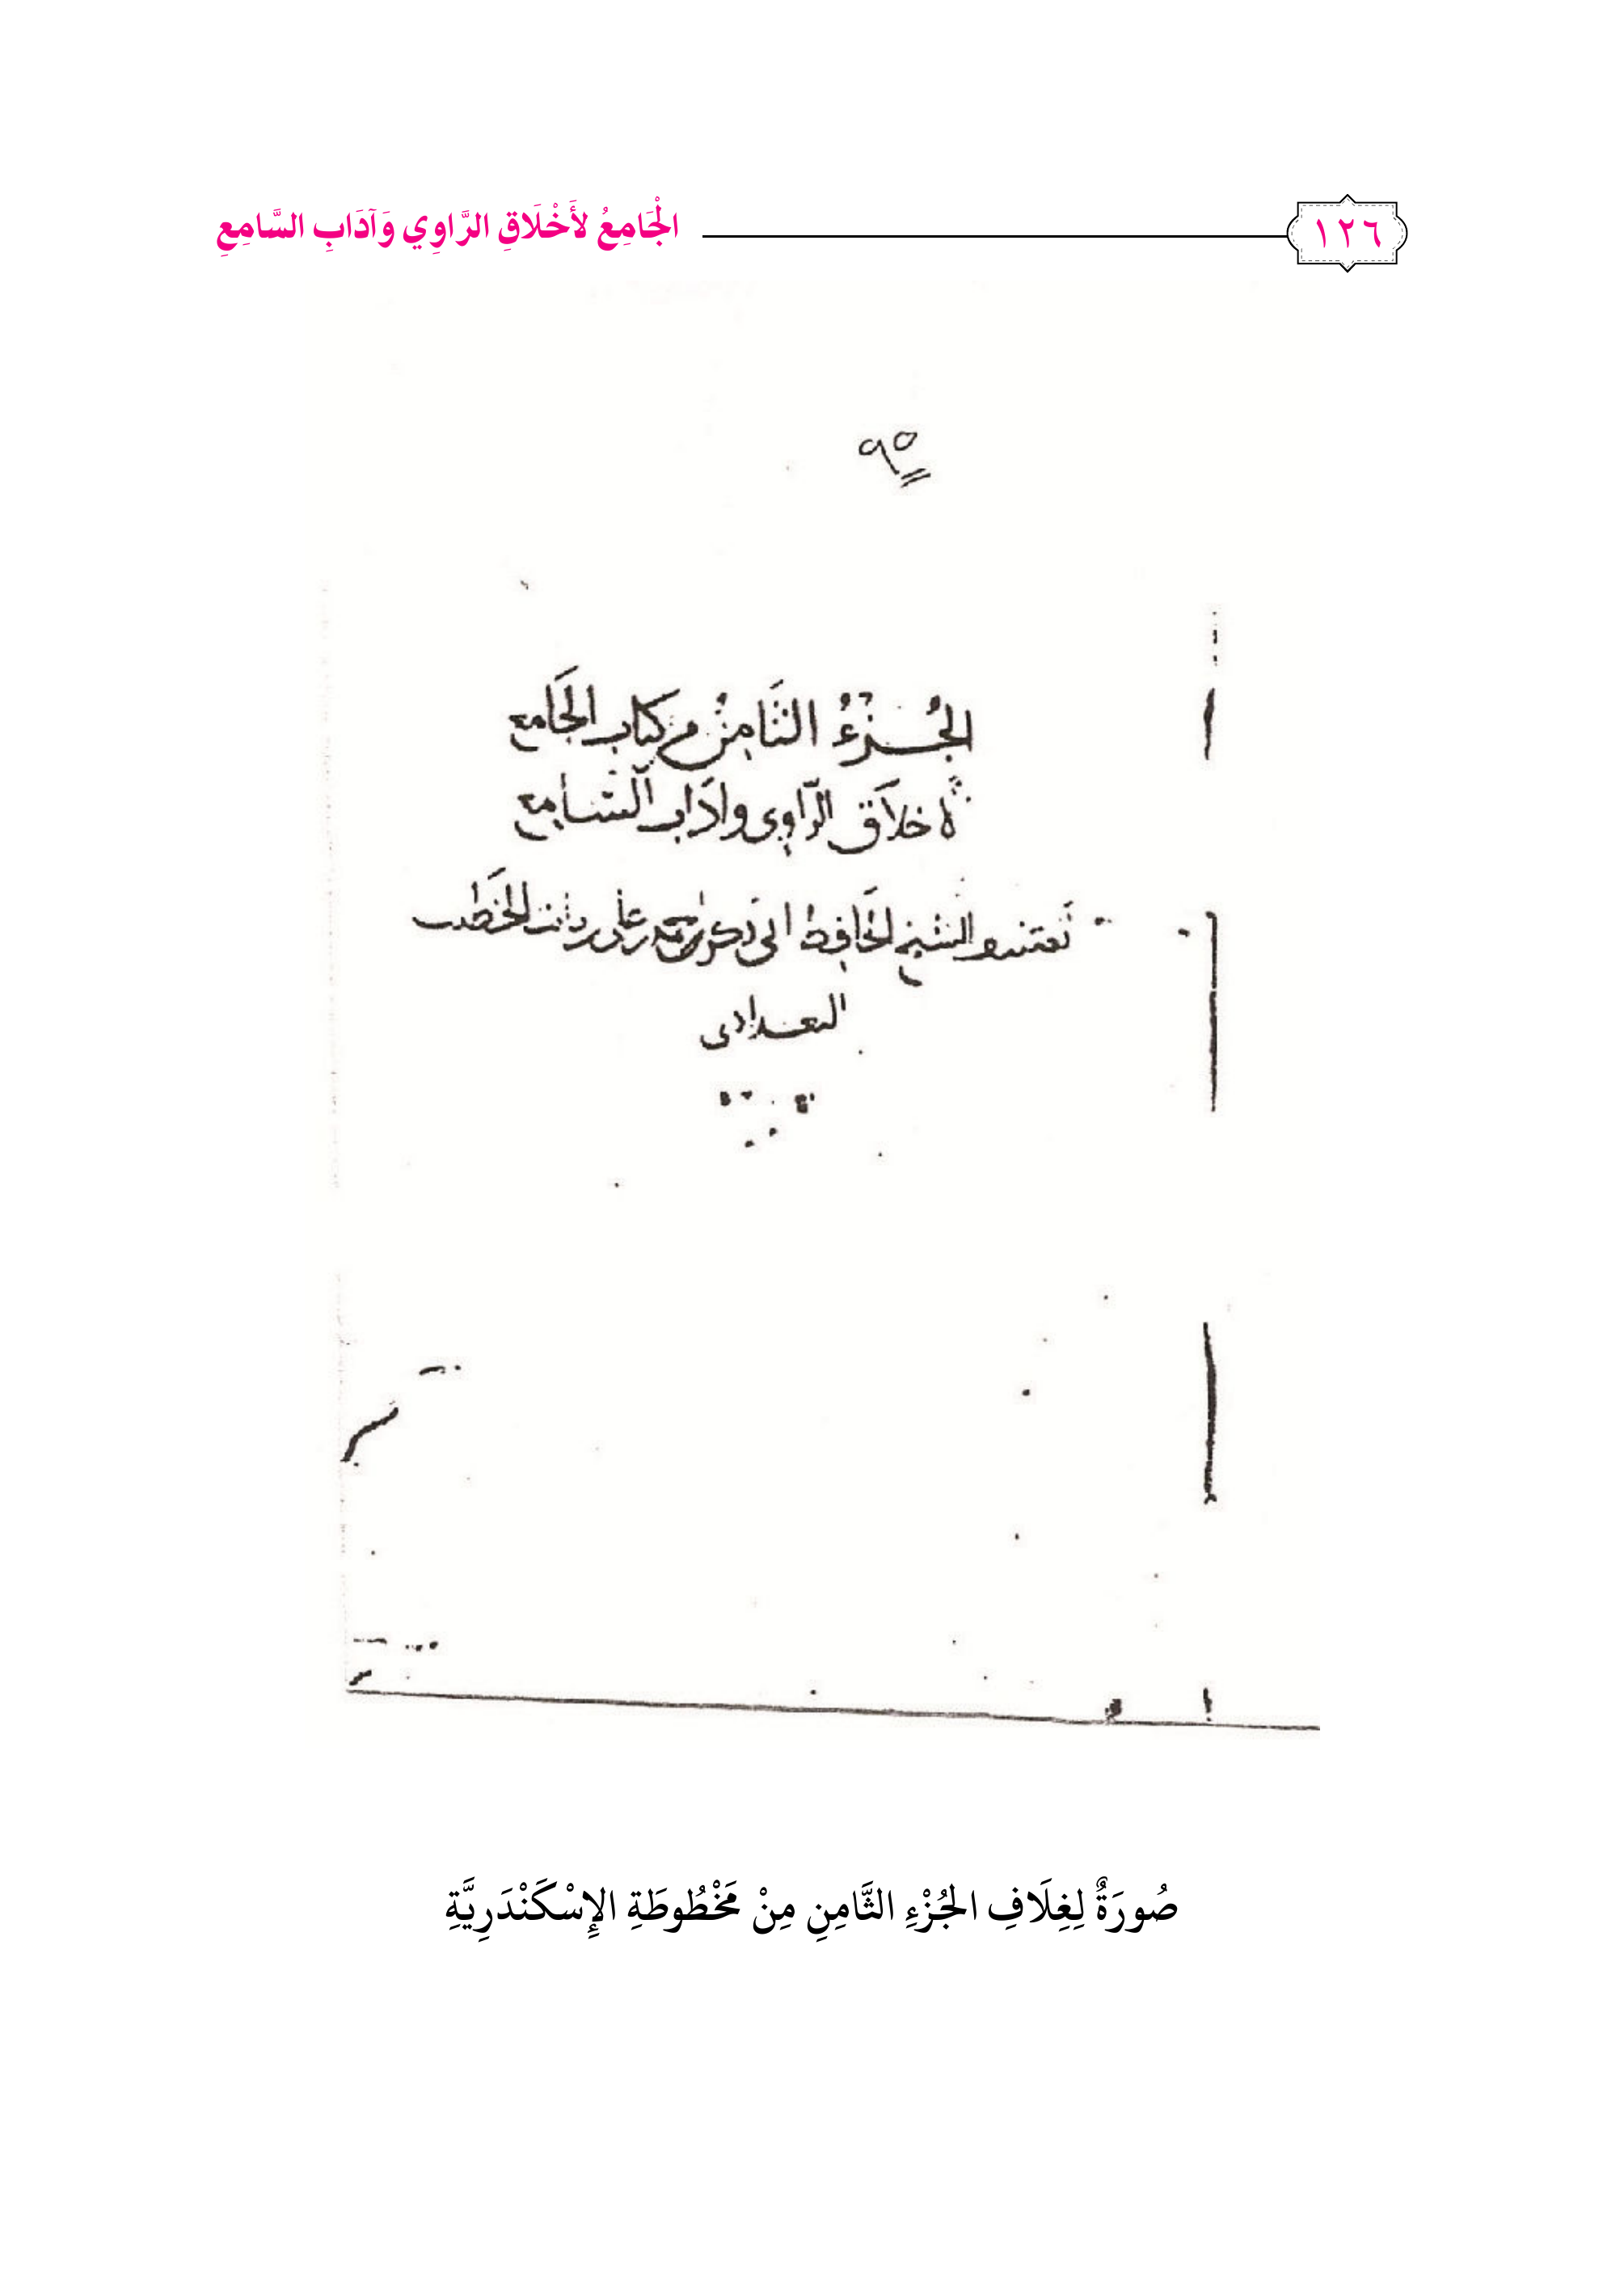 ١٢٦
الْجَامِعُ لأَخْلَاقِ الرَّاوِي وَآدَابِ السَّامِعِ
٩٥
الجُزءُ الثَّامِنُ من كتاب الجَامع
لاخلاَق الرَّاوِى وادَاب السَّامع
تصنيف الشيخ الحَافِظ ابى بَكر احمد بن على بن ثابت الخَطيب
البغدادى
صُورَةٌ لِغِلَافِ الجُزْءِ الثَّامِنِ مِنْ مَخْطُوطَةِ الإِسْكَنْدَرِيَّةِ